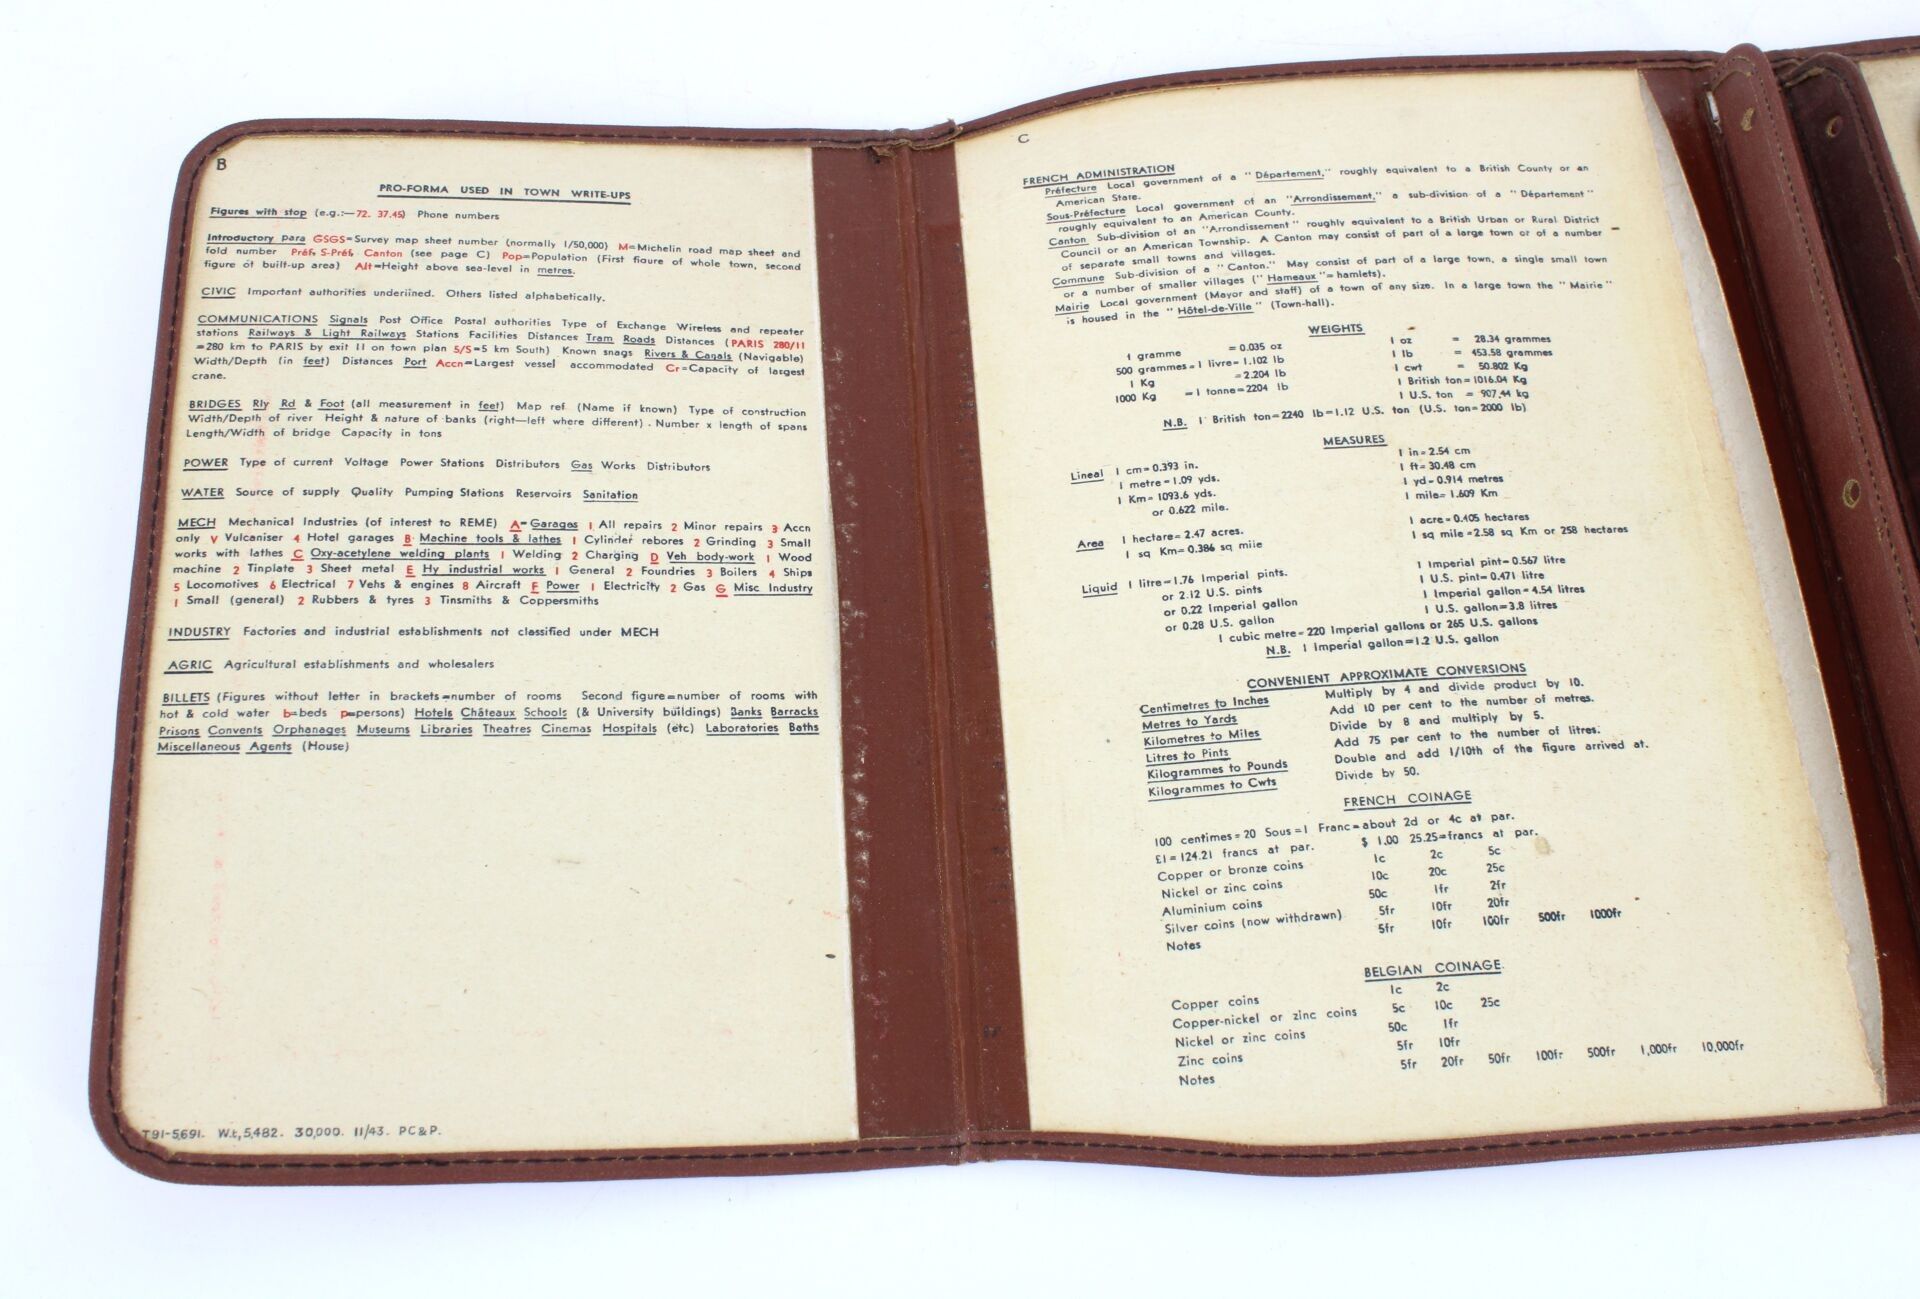 B
PRO-FORMA USED IN TOWN WRITE-UPS
Figures with stop (e.g.:—72. 37.45) Phone numbers
Introductory para GSGS=Survey map sheet number (normally 1/50,000) M=Michelin road map sheet and
fold number Préf, S-Préf, Canton (see page C) Pop=Population (First figure of whole town, second
figure of built-up area) Alt=Height above sea-level in metres.
CIVIC Important authorities underlined. Others listed alphabetically.
COMMUNICATIONS Signals Post Office Postal authorities Type of Exchange Wireless and repeater
stations Railways & Light Railways Stations Facilities Distances Tram Roads Distances (PARIS 280/11
=280 km to PARIS by exit 11 on town plan 5/S=5 km South) Known snags Rivers & Canals (Navigable)
Width/Depth (in feet) Distances Port Accn=Largest vessel accommodated Cr=Capacity of largest
crane.
BRIDGES Rly Rd & Foot (all measurement in feet) Map ref (Name if known) Type of construction
Width/Depth of river Height & nature of banks (right—left where different). Number x length of spans
Length/Width of bridge Capacity in tons
POWER Type of current Voltage Power Stations Distributors Gas Works Distributors
WATER Source of supply Quality Pumping Stations Reservoirs Sanitation
MECH Mechanical Industries (of interest to REME) A=Garages 1 All repairs 2 Minor repairs 3 Accn
only V Vulcaniser 4 Hotel garages B Machine tools & lathes 1 Cylinder rebores 2 Grinding 3 Small
works with lathes C Oxy-acetylene welding plants 1 Welding 2 Charging D Veh body-work 1 Wood
machine 2 Tinplate 3 Sheet metal E Hy industrial works 1 General 2 Foundries 3 Boilers 4 Ships
5 Locomotives 6 Electrical 7 Vehs & engines 8 Aircraft F Power 1 Electricity 2 Gas G Misc Industry
1 Small (general) 2 Rubbers & tyres 3 Tinsmiths & Coppersmiths
INDUSTRY Factories and industrial establishments not classified under MECH
AGRIC Agricultural establishments and wholesalers
BILLETS (Figures without letter in brackets=number of rooms Second figure=number of rooms with
hot & cold water b=beds p=persons) Hotels Châteaux Schools (& University buildings) Banks Barracks
Prisons Convents Orphanages Museums Libraries Theatres Cinemas Hospitals (etc) Laboratories Baths
Miscellaneous Agents (House)
T91-5691. Wt,5,482. 30,000. 11/43. PC&P.
C
FRENCH ADMINISTRATION
Préfecture Local government of a "Département," roughly equivalent to a British County or an
American State.
Sous-Préfecture Local government of an "Arrondissement," a sub-division of a "Département"
roughly equivalent to an American County.
Canton Sub-division of an "Arrondissement" roughly equivalent to a British Urban or Rural District
Council or an American Township. A Canton may consist of part of a large town or of a number
of separate small towns and villages.
Commune Sub-division of a "Canton." May consist of part of a large town, a single small town
or a number of smaller villages ("Hameaux"=hamlets).
Mairie Local government (Mayor and staff) of a town of any size. In a large town the "Mairie"
is housed in the "Hôtel-de-Ville" (Town-hall).
WEIGHTS
1 gramme =0.035 oz 1 oz = 28.34 grammes
500 grammes=1 livre=1.102 lb 1 lb = 453.58 grammes
1 Kg =2.204 lb 1 cwt = 50.802 Kg
1000 Kg =1 tonne=2204 lb 1 British ton=1016.04 Kg
1 U.S. ton = 907.44 kg
N.B. 1 British ton=2240 lb=1.12 U.S. ton (U.S. ton=2000 lb)
MEASURES
Lineal 1 cm=0.393 in. 1 in=2.54 cm
1 metre=1.09 yds. 1 ft=30.48 cm
1 Km=1093.6 yds. 1 yd=0.914 metres
or 0.622 mile. 1 mile=1.609 Km
Area 1 hectare=2.47 acres. 1 acre=0.405 hectares
1 sq Km=0.386 sq mile 1 sq mile=2.58 sq Km or 258 hectares
Liquid 1 litre=1.76 Imperial pints. 1 Imperial pint=0.567 litre
or 2.12 U.S. pints 1 U.S. pint=0.471 litre
or 0.22 Imperial gallon 1 Imperial gallon=4.54 litres
or 0.28 U.S. gallon 1 U.S. gallon=3.8 litres
1 cubic metre=220 Imperial gallons or 265 U.S. gallons
N.B. 1 Imperial gallon=1.2 U.S. gallon
CONVENIENT APPROXIMATE CONVERSIONS
Centimetres to Inches Multiply by 4 and divide product by 10.
Metres to Yards Add 10 per cent to the number of metres.
Kilometres to Miles Divide by 8 and multiply by 5.
Litres to Pints Add 75 per cent to the number of litres.
Kilogrammes to Pounds Double and add 1/10th of the figure arrived at.
Kilogrammes to Cwts Divide by 50.
FRENCH COINAGE
100 centimes=20 Sous=1 Franc=about 2d or 4c at par.
£1=124.21 francs at par. $ 1.00 25.25=francs at par.
Copper or bronze coins 1c 2c 5c
Nickel or zinc coins 10c 20c 25c
Aluminium coins 50c 1fr 2fr
Silver coins (now withdrawn) 5fr 10fr 20fr
Notes 5fr 10fr 100fr 500fr 1000fr
BELGIAN COINAGE
Copper coins 1c 2c
Copper-nickel or zinc coins 5c 10c 25c
Nickel or zinc coins 50c 1fr
Zinc coins 5fr 10fr
Notes 5fr 20fr 50fr 100fr 500fr 1,000fr 10,000fr